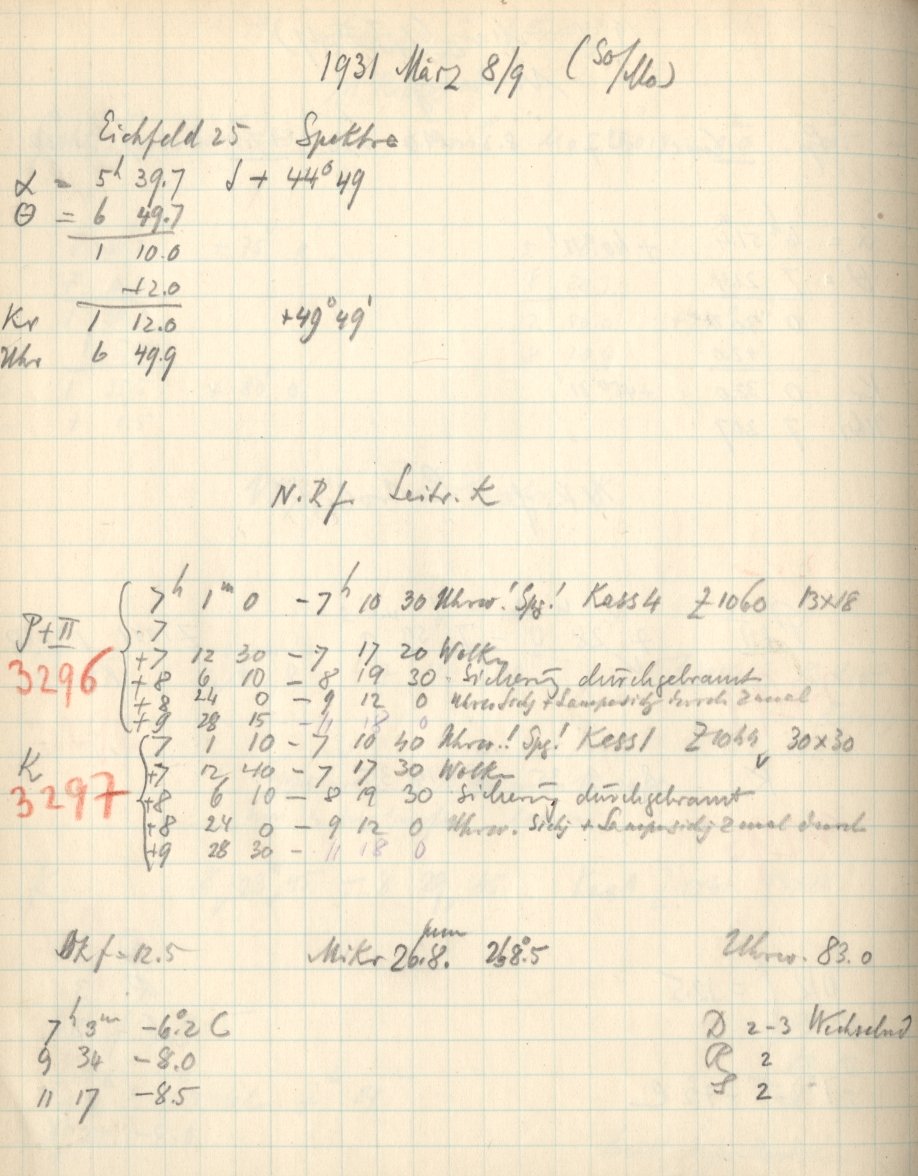 1931 März 8/9 (So/Mo)
Eichfeld 25 Spektra
α = 5h 39.7 δ + 44° 49
Θ = 6 49.7
1 10.0
+2.0
Kr 1 12.0 +49° 49'
Uhr 6 49.9
N.Rf. Leitr. K
7h 1m 0 - 7h 10 30 Uhrw! Spg! Kass 4 Z 1060 13x18
P+II
7
+7 12 30 - 7 17 20 Wolk
3296
+8 6 10 - 8 19 30 Sicherung durchgebrannt
+8 24 0 - 9 12 0 Uhrw Sichg + Lampensichg durch 2 mal
+9 28 15 - 11 18 0
7 1 10 - 7 10 40 Uhrw.! Spg! Kass 1 Z 1044 30x30
K
+7 12 40 - 7 17 30 Wolk
3297
+8 6 10 - 8 19 30 Sicherung durchgebrannt
+8 24 0 - 9 12 0 Uhrw. Sichg + Lampensichg 2 mal durch
+9 28 30 - 11 18 0
Rf = 12.5 Mikr 26.8. mm 268°.5 Uhrw. 83.0
7h 3m -6°.2 C D 2-3 Wechselnd
9 34 -8.0 R 2
11 17 -8.5 S 2